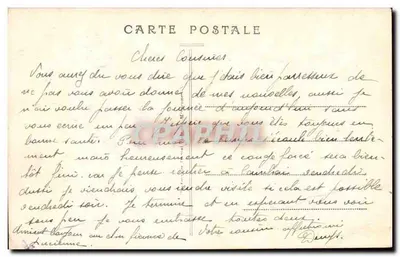 CARTE POSTALE
Cheres Cousines
Vous avez du vous dire que j'étais bien paresseux de
ne pas vous avoir donné de mes nouvelles, aussi je
n'ai voulu passer la journée d'aujourd'hui sans
vous écrire un peu. J'espère que vous êtes toujours en
bonne santé. Pour moi le temps s'écoule bien lente-
ment mais heureusement ce congé forcé sera bien-
tôt fini. car je pense rentrer à vendredi
je viendrais vous rendre visite si cela est possible
vendredi soir. Je termine et en espérant vous voir
sous peu je vous embrasse toutes deux.
Votre cousin affectionné